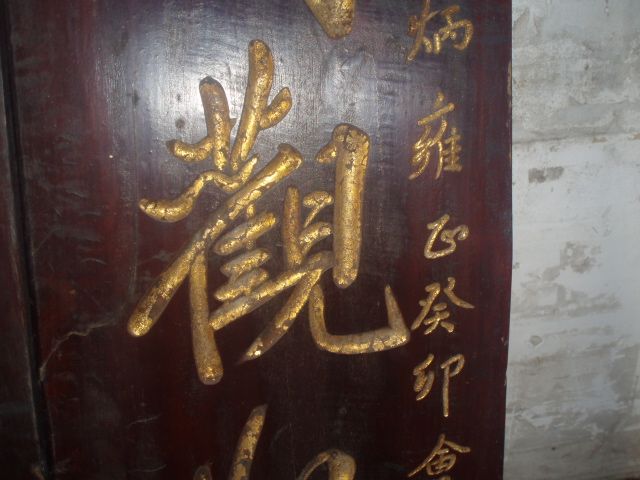 炳雍正癸卯會
觀